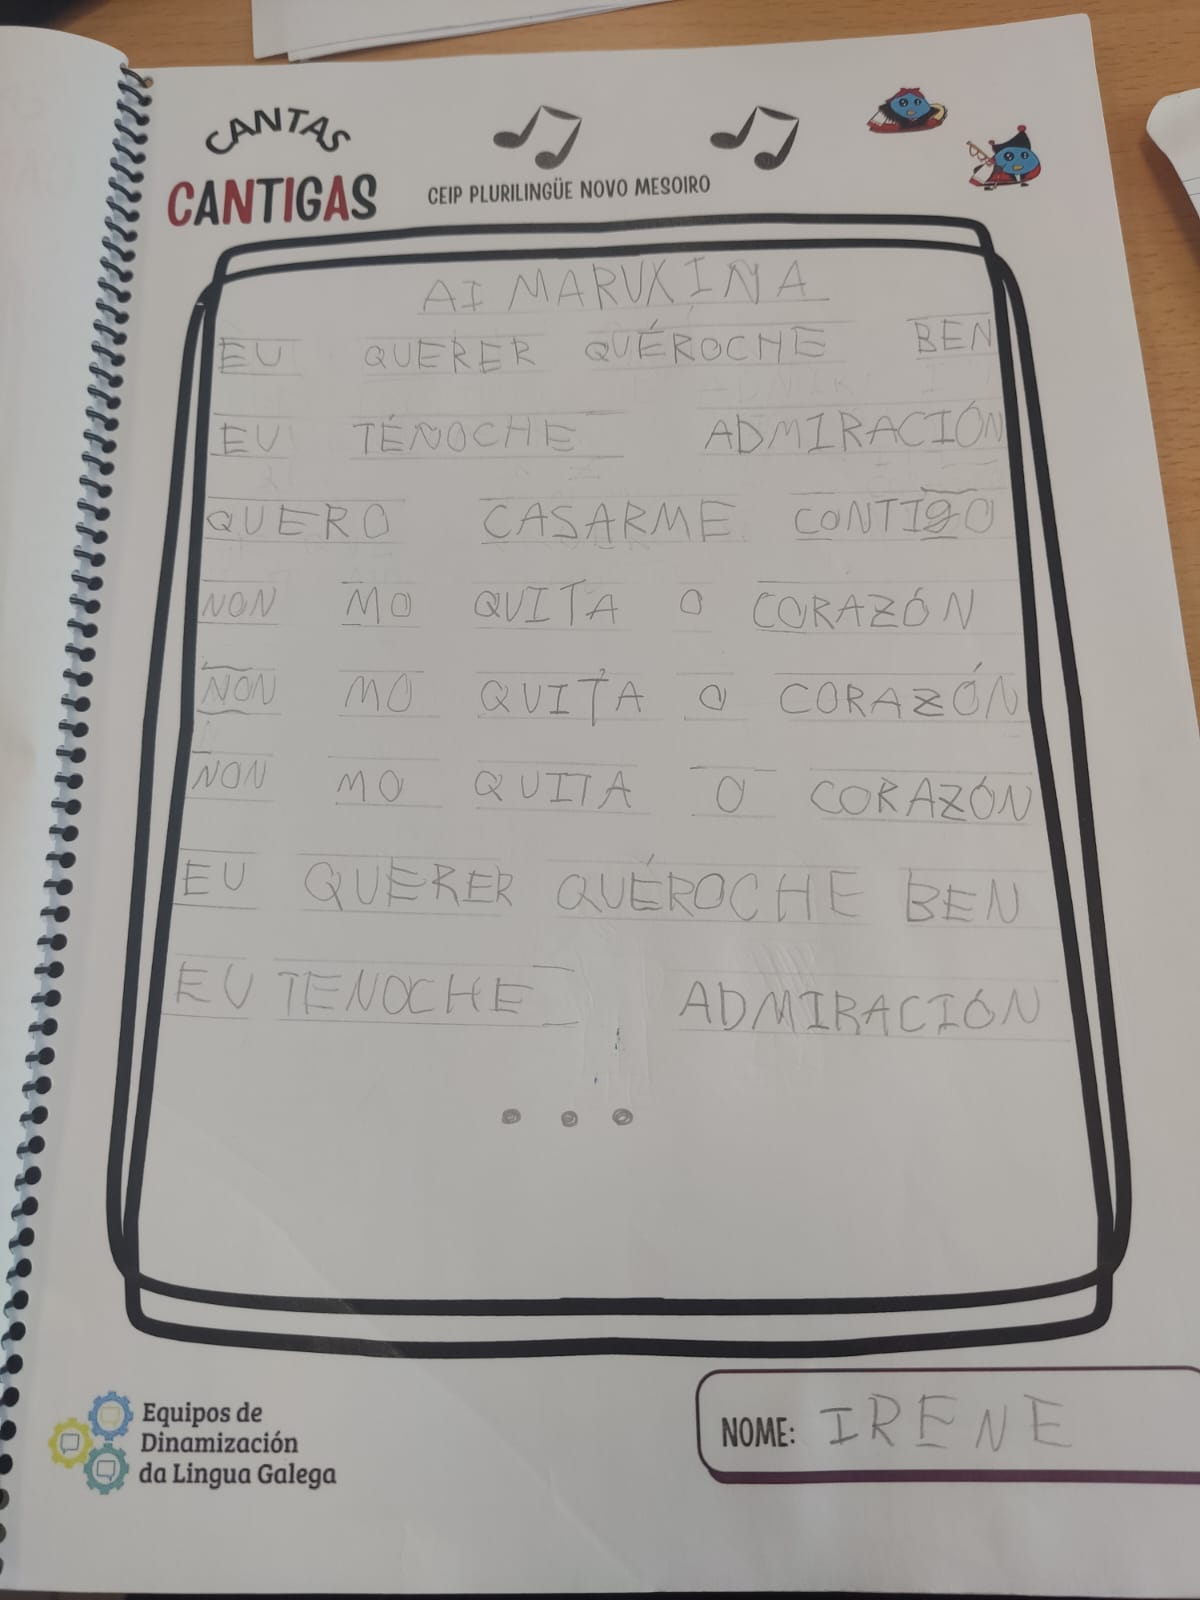 CANTAS
CANTIGAS
CEIP PLURILINGÜE NOVO MESOIRO
AI MARUXIÑA
EU QUERER QUÉROCHE BEN
EU TÉNOCHE ADMIRACIÓN
QUERO CASARME CONTIGO
NON MO QUITA O CORAZÓN
NON MO QUITA O CORAZÓN
NON MO QUITA O CORAZÓN
EU QUERER QUÉROCHE BEN
EU TENOCHE ADMIRACIÓN
...
Equipos de
Dinamización
da Lingua Galega
NOME: IRENE